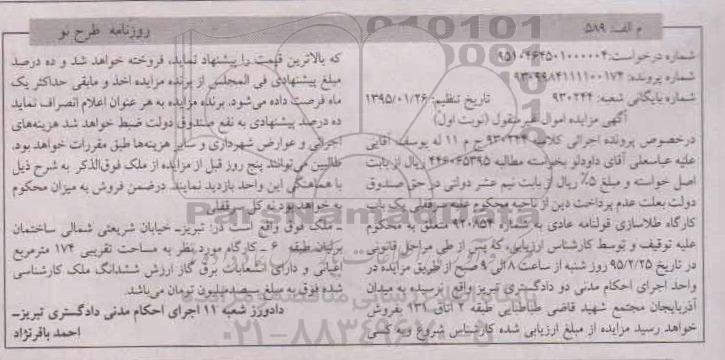 م الف: ۵۸۹
روزنامه طرح نو
شماره درخواست: ۹۵۱۰۴۶۴۵۰۱۰۰۰۰۰۴
شماره پرونده: ۹۳۰۹۹۸۴۱۱۱۱۰۰۱۷۴
شماره بایگانی شعبه: ۹۳۰۲۴۴ تاریخ تنظیم: ۱۳۹۵/۰۱/۲۶
آگهی مزایده اموال غیرمنقول (نوبت اول)
درخصوص پرونده اجرائی کلاسه ۹۳۰۲۴۴ ج م ۱۱ له یوسف آقایی
علیه عباسعلی آقای داودلو بخواسته مطالبه ۴۴۶۰۶۵۳۹۵ ریال از بابت
اصل خواسته و مبلغ ۵٪ ریال از بابت نیم عشر دولتی در حق صندوق
دولت بعلت عدم پرداخت دین از ناحیه محکوم علیه سرقفلی یک باب
کارگاه طلاسازی قولنامه عادی به شماره ۹۲۰۸۵۴ متعلق به محکوم
علیه توقیف و توسط کارشناس ارزیابی، که پس از طی مراحل قانونی
در تاریخ ۹۵/۲/۲۵ روز شنبه از ساعت ۸ الی ۹ صبح از طریق مزایده در
واحد اجرای احکام مدنی دو دادگستری تبریز واقع نرسیده به میدان
آذربایجان مجتمع شهید قاضی طباطبایی طبقه ۲ اتاق ۱۳۱ بفروش
خواهد رسید مزایده از مبلغ ارزیابی شده کارشناس شروع و به کسی
که بالاترین قیمت را پیشنهاد نماید، فروخته خواهد شد و ده درصد
مبلغ پیشنهادی فی المجلس از برنده مزایده اخذ و مابقی حداکثر یک
ماه فرصت داده می‌شود. برنده مزایده به هر عنوان اعلام انصراف نماید
ده درصد پیشنهادی به نفع صندوق دولت ضبط خواهد شد هزینه‌های
اجرائی و عوارض شهرداری و سایر هزینه‌ها طبق مقررات خواهد بود.
طالبین می‌توانند پنج روز قبل از مزایده از ملک فوق‌الذکر به شرح ذیل
با هماهنگی این واحد بازدید نمایند. درضمن فروش به میزان محکوم
به خواهد بود نه کل سرقفلی
ـ ملک فوق واقع است در: تبریزـ خیابان شریعتی شمالی ساختمان
برلیان طبقه ۶ ـ کارگاه مورد نظر به مساحت تقریبی ۱۷۴ مترمربع
اعیانی و دارای انشعابات برق گاز ارزش ششدانگ ملک کارشناسی
شده فوق به مبلغ سیصدمیلیون تومان می‌باشد.
دادورز شعبه ۱۱ اجرای احکام مدنی دادگستری تبریزـ
احمد باقرنژاد
ParsNamadData
۰۲۱-۸۸۳۴۹۶۷۰-۵